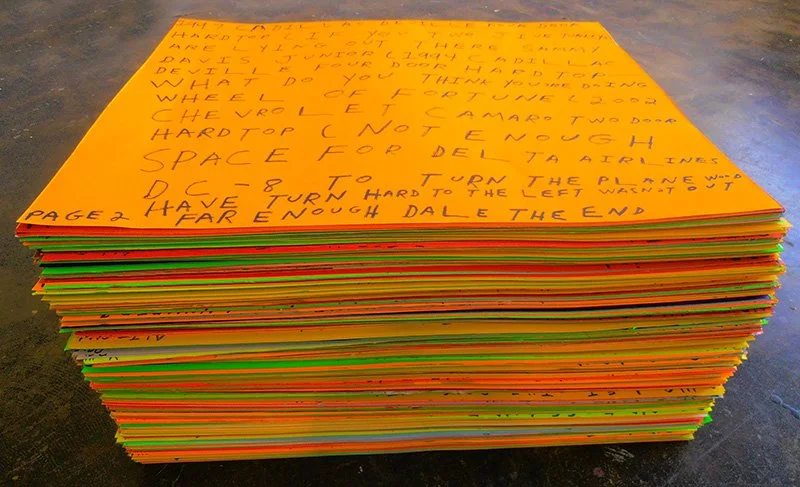 1947 CADILLAC DEVILLE FOUR DOOR
HARDTOP (IF YOU TWO JIVE TURKEY
ARE LYING OUT THERE SAMMY
DAVIS JUNIOR (1944 CADILLAC
DEVILLE FOUR DOOR HARD TOP
WHAT DO YOU THINK YOU'RE DOING
WHEEL OF FORTUNE (2002
CHEVROLET CAMARO TWO DOOR
HARDTOP (NOT ENOUGH
SPACE FOR DELTA AIRLINES
DC-8 TO TURN THE PLANE WOOD
HAVE TURN HARD TO THE LEFT WASNOT OUT
PAGE 2 FAR ENOUGH DALE THE END